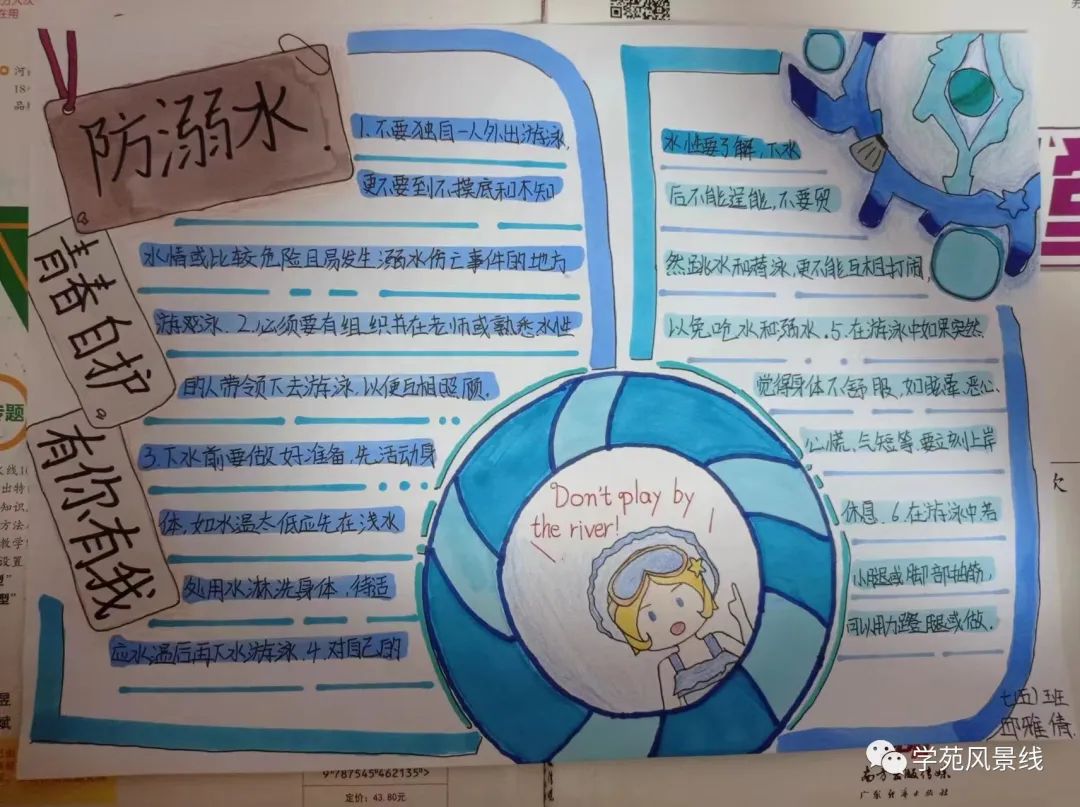 防溺水!
青春自护
有你有我
1.不要独自一人外出游泳,
更不要到不摸底和不知
水情或比较危险且易发生溺水伤亡事件的地方
游泳. 2.必须要有组织并在老师或熟悉水性
的人带领下去游泳,以便互相照顾.
3.下水前要做好准备,先活动身
体,如水温太低应先在浅水
处用水淋洗身体,待适
应水温后再下水游泳.4.对自己的
水性要了解,下水
后不能逞能,不要贸
然跳水和潜泳,更不能互相打闹,
以免呛水和溺水.5.在游泳中如果突然
觉得身体不舒服,如眩晕.恶心.
心慌.气短等.要立刻上岸
休息.6.在游泳中若
小腿或脚部抽筋,
可以用力蹬腿或做.
Don't play by
the river!
七(五)班
邱雅倩
学苑风景线
9"787545"462135">
定价: 43.80元
南方出版传媒
广东经济出版社